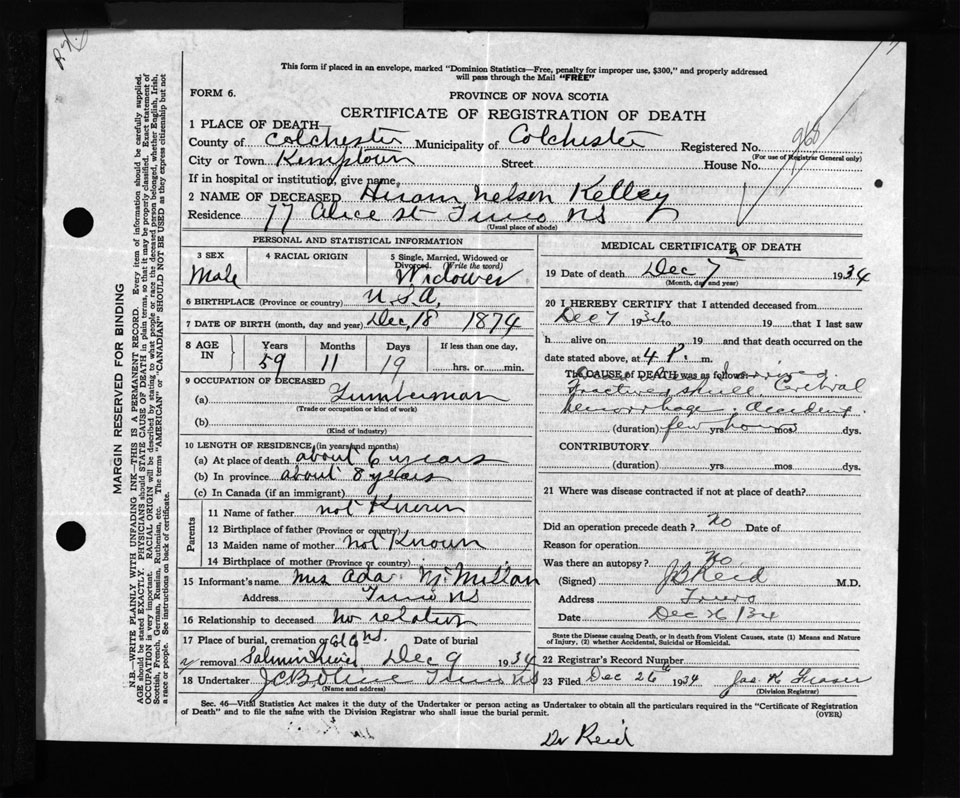 This form if placed in an envelope, marked "Dominion Statistics—Free, penalty for improper use, $300," and properly addressed
will pass through the Mail "FREE"
FORM 6.
PROVINCE OF NOVA SCOTIA
CERTIFICATE OF REGISTRATION OF DEATH
1 PLACE OF DEATH
County of Colchester Municipality of Colchester Registered No. 968
(For use of Registrar General only)
City or Town Kemptown Street House No.
If in hospital or institution, give name
2 NAME OF DECEASED Hiram Nelson Kelley
Residence 77 Alice St Truro NS
(Usual place of abode)
PERSONAL AND STATISTICAL INFORMATION
3 SEX 4 RACIAL ORIGIN 5 Single, Married, Widowed or
Divorced. (Write the word)
Male Widower
6 BIRTHPLACE (Province or country) U.S.A,
7 DATE OF BIRTH (month, day and year) Dec, 18 1874
8 AGE IN Years Months Days If less than one day,
59 11 19 hrs. or min.
9 OCCUPATION OF DECEASED
(a) Lumberman
(Trade or occupation or kind of work)
(b)
(Kind of industry)
10 LENGTH OF RESIDENCE (in years and months)
(a) At place of death about 6 years
(b) In province about 8 years
(c) In Canada (if an immigrant)
Parents
11 Name of father not Known
12 Birthplace of father (Province or country)
13 Maiden name of mother not Known
14 Birthplace of mother (Province or country)
15 Informant's name Mrs Ada McMillan
Address Truro NS
16 Relationship to deceased no relation
17 Place of burial, cremation or Date of burial
removal Salmon River Dec 9 1934
18 Undertaker Truro NS
(Name and address)
MEDICAL CERTIFICATE OF DEATH
19 Date of death Dec 7 1934
(Month, day and year)
20 I HEREBY CERTIFY that I attended deceased from
Dec 7 1934 to 19 that I last saw
h alive on 19 and that death occurred on the
date stated above, at 4 P. m.
The CAUSE of DEATH was as follows:
Fractured skull Cerebral
hemorrhage. Accident.
(duration) few yrs. hours mos. dys.
CONTRIBUTORY.
(duration) yrs. mos. dys.
21 Where was disease contracted if not at place of death?
Did an operation precede death? no Date of
Reason for operation
Was there an autopsy? No
(Signed) J B Reid M.D.
Address Truro
Date Dec 26 34
State the Disease causing Death, or in death from Violent Causes, state (1) Means and Nature
of Injury, (2) whether Accidental, Suicidal or Homicidal.
22 Registrar's Record Number
23 Filed Dec 26 1934 Jas. K Fraser
(Division Registrar)
Sec. 46—Vital Statistics Act makes it the duty of the Undertaker or person acting as Undertaker to obtain all the particulars required in the "Certificate of Registration
of Death" and to file the same with the Division Registrar who shall issue the burial permit.
(OVER)
Dr Reid
MARGIN RESERVED FOR BINDING
N.B.—WRITE PLAINLY WITH UNFADING INK—THIS IS A PERMANENT RECORD. Every item of information should be carefully supplied.
AGE should be stated EXACTLY. PHYSICIANS should STATE CAUSE OF DEATH in plain terms, so that it may be properly classified. Exact statement of
OCCUPATION is very important. RACIAL ORIGIN will be described by stating to what people or race the deceased person belonged, whether English, Irish,
Scottish, French, German, Russian, Ruthenian, etc. The terms "AMERICAN" or "CANADIAN" SHOULD NOT BE USED as they express citizenship but not
a race or people. See instructions on back of certificate.